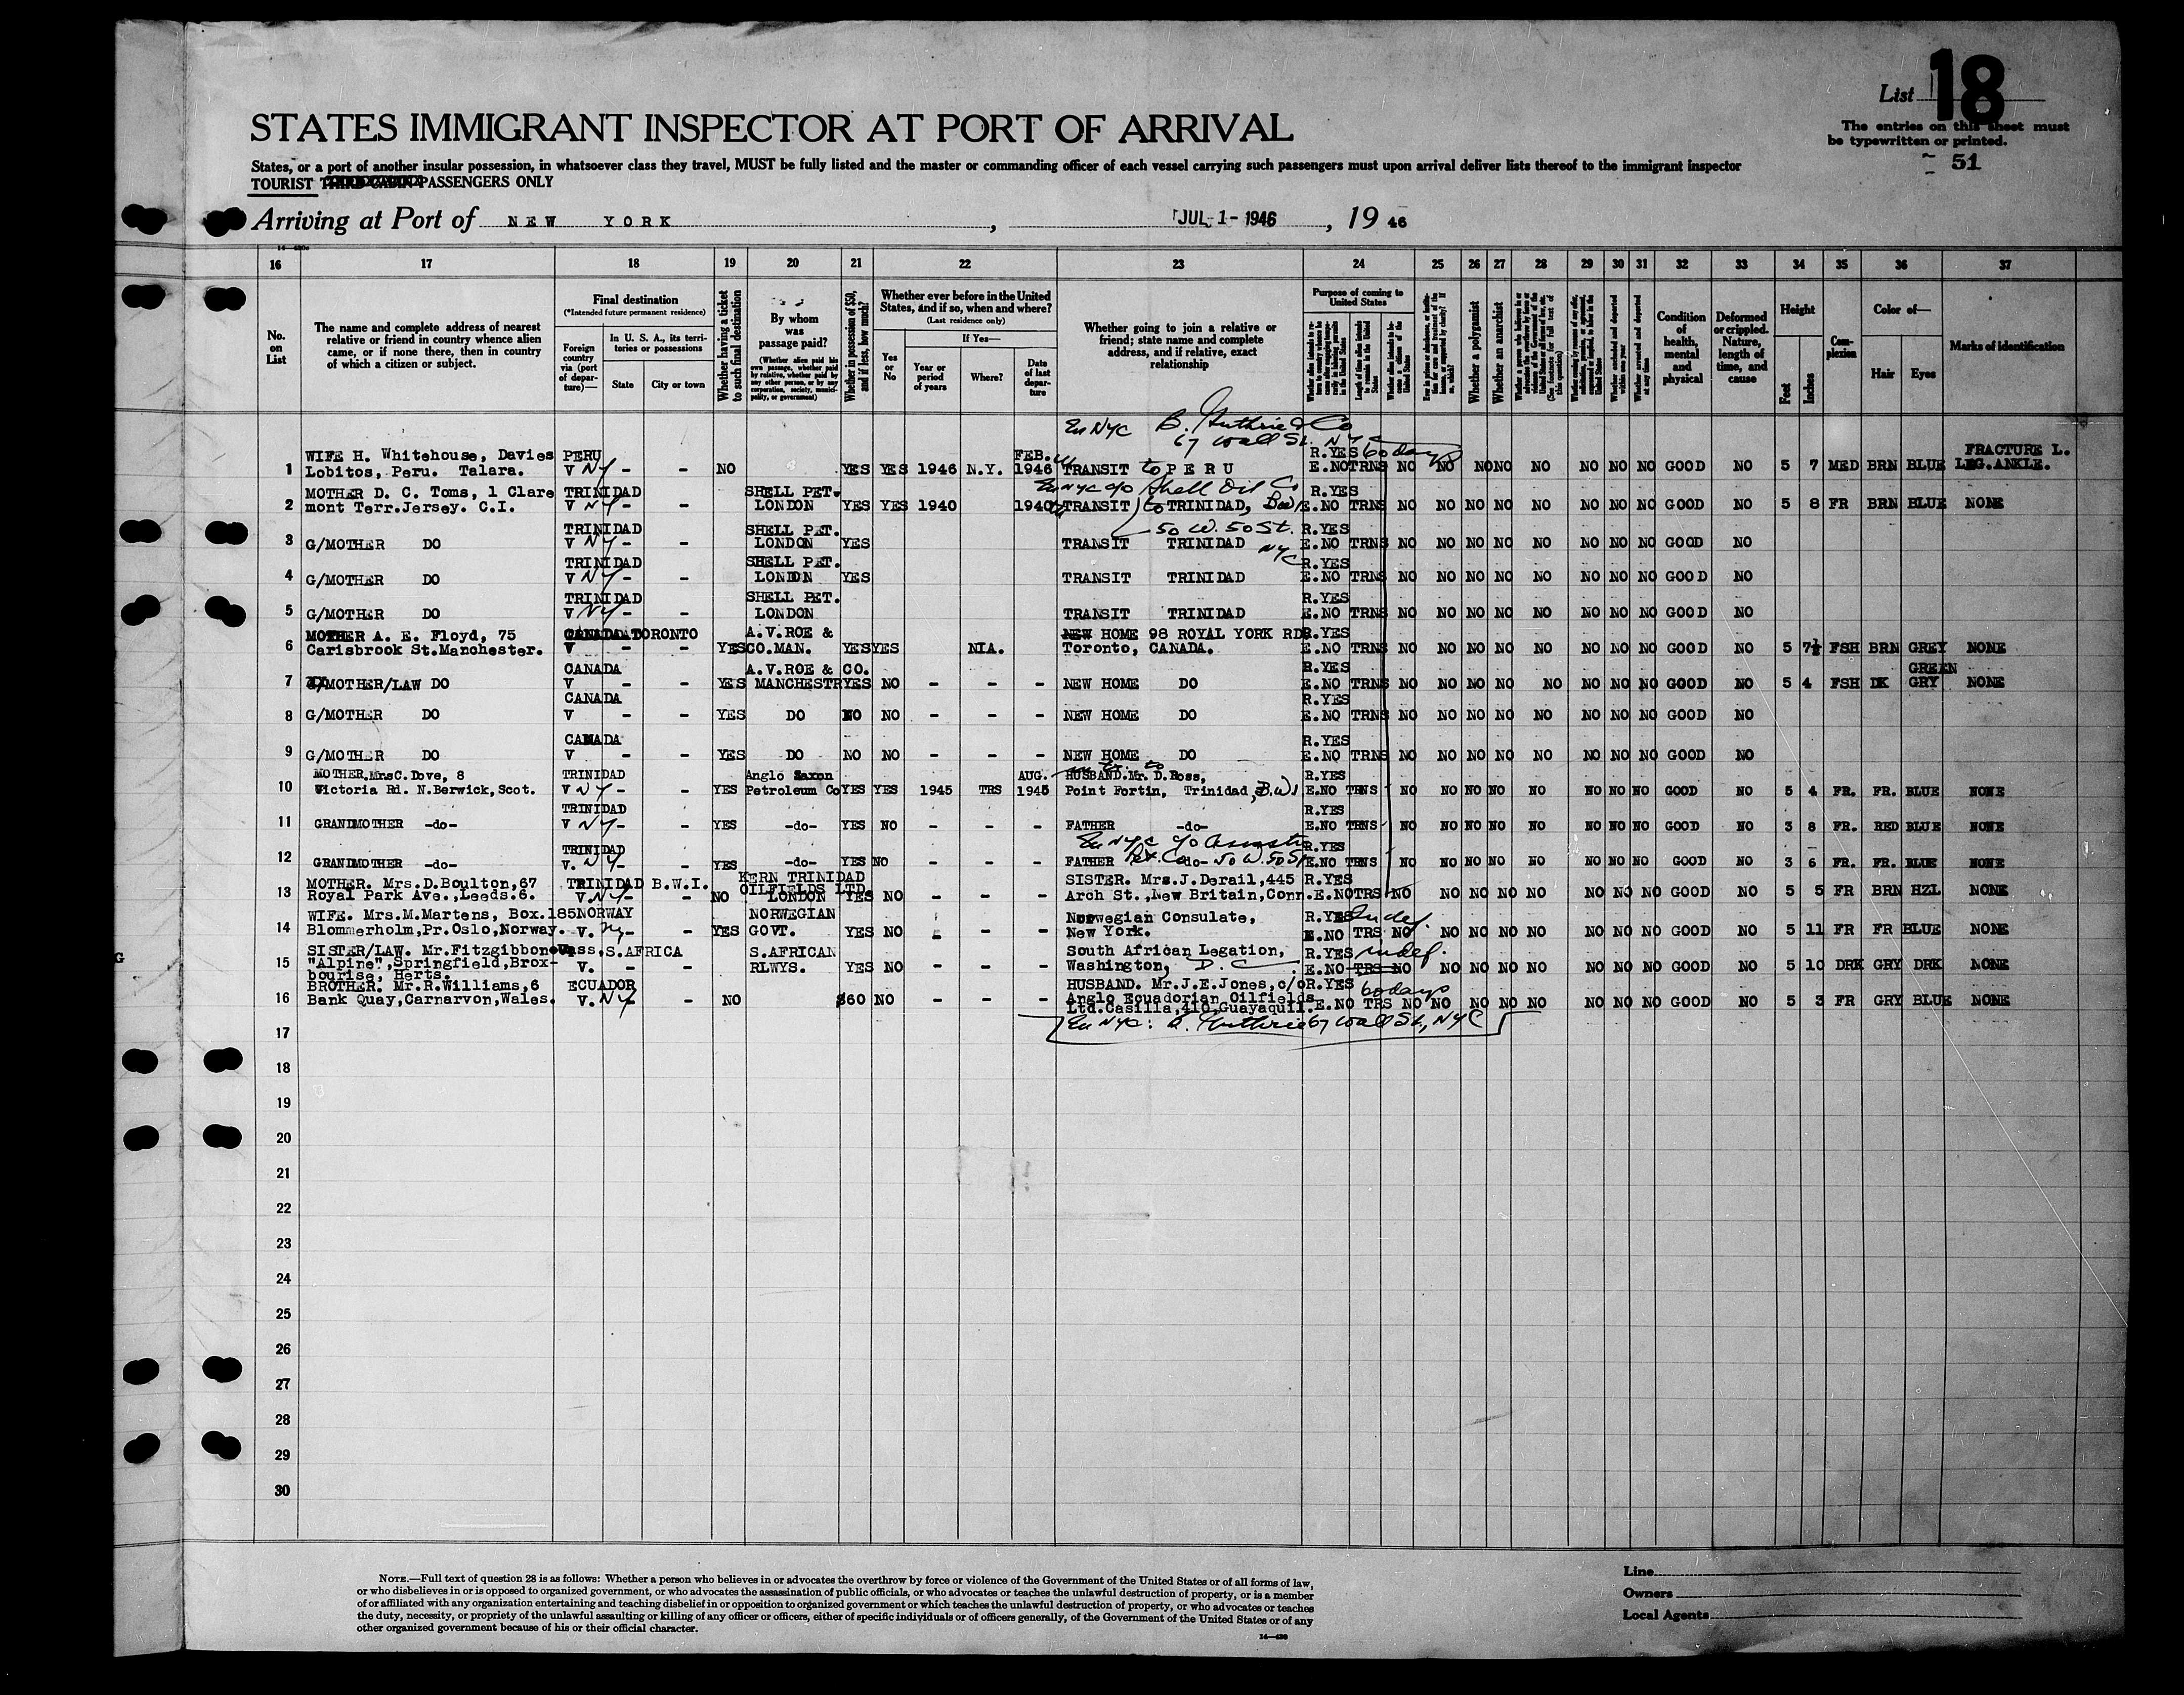 List 18
The entries on this sheet must
be typewritten or printed.
51
STATES IMMIGRANT INSPECTOR AT PORT OF ARRIVAL
States, or a port of another insular possession, in whatsoever class they travel, MUST be fully listed and the master or commanding officer of each vessel carrying such passengers must upon arrival deliver lists thereof to the immigrant inspector
TOURIST PASSENGERS ONLY
Arriving at Port of NEW YORK, JUL 1- 1946, 19 46
16 17 18 19 20 21 22 23 24 25 26 27 28 29 30 31 32 33 34 35 36 37
No. on List
The name and complete address of nearest relative or friend in country whence alien came, or if none there, then in country of which a citizen or subject.
Final destination
(*Intended future permanent residence)
Foreign country via (port of departure)—
In U. S. A., its territories or possessions
State
City or town
Whether having a ticket to such final destination
By whom was passage paid?
(Whether alien paid his own passage, whether paid by relative, whether paid by any other person, or by any corporation, society, municipality, or government)
Whether in possession of $50, and if less, how much?
Whether ever before in the United States, and if so, when and where?
(Last residence only)
Yes or No
If Yes—
Year or period of years
Where?
Date of last departure
Whether going to join a relative or friend; state name and complete address, and if relative, exact relationship
Purpose of coming to United States
Whether a polygamist
Whether an anarchist
Condition of health, mental and physical
Deformed or crippled. Nature, length of time, and cause
Height
Feet
Inches
Complexion
Color of—
Hair
Eyes
Marks of identification
En NYC B. Guthrie & Co
67 Wall St. NYC
WIFE H. Whitehouse, Davies PERU FEB. R.YES 60 days FRACTURE L.
1 Lobitos, Peru. Talara. V NY - - NO YES YES 1946 N.Y. 1946 TRANSIT to PERU E.NO TRNS NO NO NO NO NO NO NO NO GOOD NO 5 7 MED BRN BLUE LEG. ANKLE.
En NYC c/o Shell Oil Co
MOTHER D. C. Toms, 1 Clare TRINIDAD SHELL PET. R.YES
2 mont Terr.Jersey. C.I. V NY - - LONDON YES YES 1940 1940 TRANSIT to TRINIDAD, BWI E.NO TRNS NO NO NO NO NO NO NO NO GOOD NO 5 8 FR BRN BLUE NONE
TRINIDAD SHELL PET. 50 W. 50 St. R.YES
3 G/MOTHER DO V NY - - LONDON YES TRANSIT TRINIDAD NYC E.NO TRNS NO NO NO NO NO NO NO NO GOOD NO
TRINIDAD SHELL PET. R.YES
4 G/MOTHER DO V NY - - LONDON YES TRANSIT TRINIDAD E.NO TRNS NO NO NO NO NO NO NO NO GOOD NO
TRINIDAD SHELL PET. R.YES
5 G/MOTHER DO V NY - - LONDON TRANSIT TRINIDAD E.NO TRNS NO NO NO NO NO NO NO NO GOOD NO
MOTHER A. E. Floyd, 75 CANADA TORONTO A.V.ROE & NEW HOME 98 ROYAL YORK RD R.YES
6 Carisbrook St.Manchester. V - - YES CO.MAN. YES YES NIA. Toronto, CANADA. E.NO TRNS NO NO NO NO NO NO NO NO GOOD NO 5 7½ FSH BRN GREY NONE
CANADA A.V.ROE & CO. R.YES GREEN
7 MOTHER/LAW DO V - - YES MANCHESTR YES NO - - - NEW HOME DO E.NO TRNS NO NO NO NO NO NO NO NO GOOD NO 5 4 FSH DK GRY NONE
CANADA R.YES
8 G/MOTHER DO V - - YES DO NO NO - - - NEW HOME DO E.NO TRNS NO NO NO NO NO NO NO NO GOOD NO
CANADA R.YES
9 G/MOTHER DO V - - YES DO NO NO - - - NEW HOME DO E.NO TRNS NO NO NO NO NO NO NO NO GOOD NO
MOTHER.MrsC.Dove, 8 TRINIDAD Anglo Saxon AUG. HUSBAND.Mr. D.Ross, R.YES
10 Victoria Rd. N.Berwick, Scot. V NY - - YES Petroleum Co YES YES 1945 TRS 1945 Point Fortin, Trinidad, B.W.I E.NO TRNS NO NO NO NO NO NO NO NO GOOD NO 5 4 FR. FR. BLUE NONE
TRINIDAD R.YES
11 GRANDMOTHER -do- V NY - - YES -do- YES NO - - - FATHER -do- E.NO TRNS NO NO NO NO NO NO NO NO GOOD NO 3 8 FR. RED BLUE NONE
En NYC c/o
TRINIDAD R.YES
12 GRANDMOTHER -do- V. NY - - YES -do- YES NO - - - FATHER Pet. Co -do- 50 W. 50 St E.NO TRNS NO NO NO NO NO NO NO NO GOOD NO 3 6 FR. FR. BLUE NONE
MOTHER. Mrs.D.Boulton,67 TRINIDAD B.W.I. KERN TRINIDAD OILFIELDS LTD SISTER. Mrs.J.Derail,445 R.YES
13 Royal Park Ave.,Leeds.6. V.NY - - NO LONDON YES NO - - - Arch St.,New Britain,Conn. E.NO TRS NO NO NO NO NO NO NO NO GOOD NO 5 5 FR BRN HZL NONE
WIFE. Mrs.M.Martens, Box.185 NORWAY NORWEGIAN Norwegian Consulate, R.YES Indef.
14 Blommerholm,Pr.Oslo,Norway. V. NY - - YES GOVT. YES NO - - - New York. E.NO TRS NO NO NO NO NO NO NO NO GOOD NO 5 11 FR FR BLUE NONE
SISTER/LAW. Mr.Fitzgibbon S.AFRICA S.AFRICAN South African Legation, R.YES indef.
15 "Alpine",Springfield,Brox- V. - - RLWYS. YES NO - - - Washington, D. C. E.NO TRS NO NO NO NO NO NO NO NO GOOD NO 5 10 DRK GRY DRK NONE
bourise, Herts.
BROTHER. Mr.R.Williams,6 ECUADOR HUSBAND. Mr.J.E.Jones,c/o R.YES 60 days
16 Bank Quay,Carnarvon,Wales. V. NY - - NO $60 NO - - - Anglo Ecuadorian Oilfields E.NO TRS NO NO NO NO NO NO NO NO GOOD NO 5 3 FR GRY BLUE NONE
Ltd.Casilla,410,Guayaquil.
En NYC: B. Guthrie 67 Wall St., NYC
17
18
19
20
21
22
23
24
25
26
27
28
29
30
NOTE.—Full text of question 28 is as follows: Whether a person who believes in or advocates the overthrow by force or violence of the Government of the United States or of all forms of law,
or who disbelieves in or is opposed to organized government, or who advocates the assassination of public officials, or who advocates or teaches the unlawful destruction of property, or is a member
of or affiliated with any organization entertaining and teaching disbelief in or opposition to organized government or which teaches the unlawful destruction of property, or who advocates or teaches
the duty, necessity, or propriety of the unlawful assaulting or killing of any officer or officers, either of specific individuals or of officers generally, of the Government of the United States or of any
other organized government because of his or their official character.
14—430
Line
Owners
Local Agents